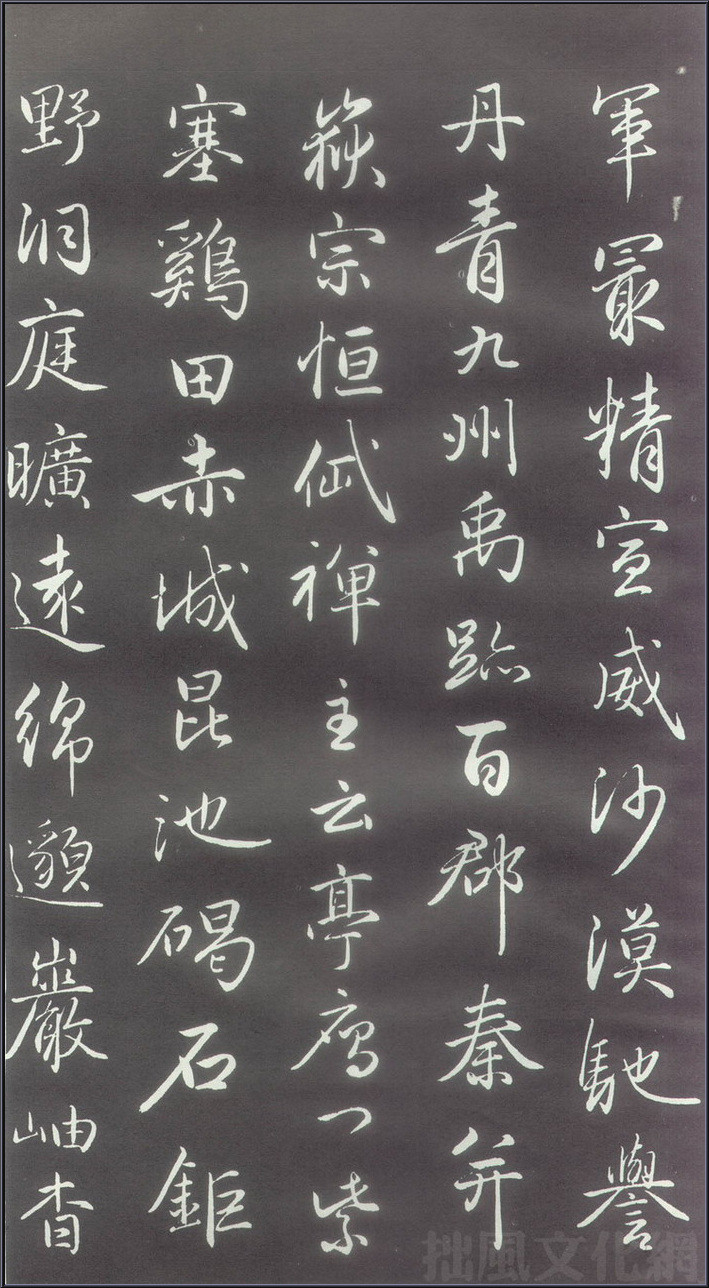 軍最精宣威沙漠馳譽
丹青九州禹跡百郡秦并
嶽宗恒岱禪主云亭鴈門紫
塞鷄田赤城昆池碣石鉅
野洞庭曠遠綿邈巖岫杳
拙風文化網